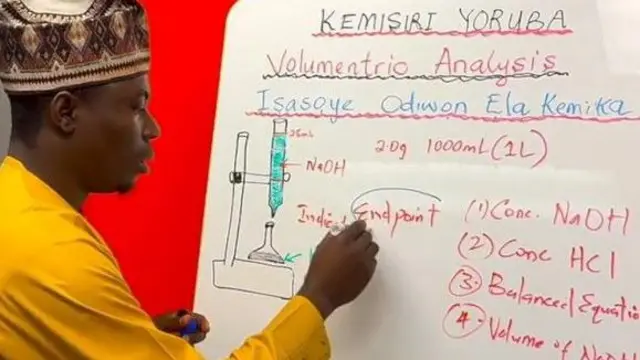 KEMISIRI YORUBA
Volumentric Analysis
Isasoye Odiwon Ela Kemika
25ml
2.0g 1000ml (1L)
NaOH
Endpoint
(1) Conc. NaOH
(2) Conc HCl
(3) Balanced Equatio
(4) Volume of